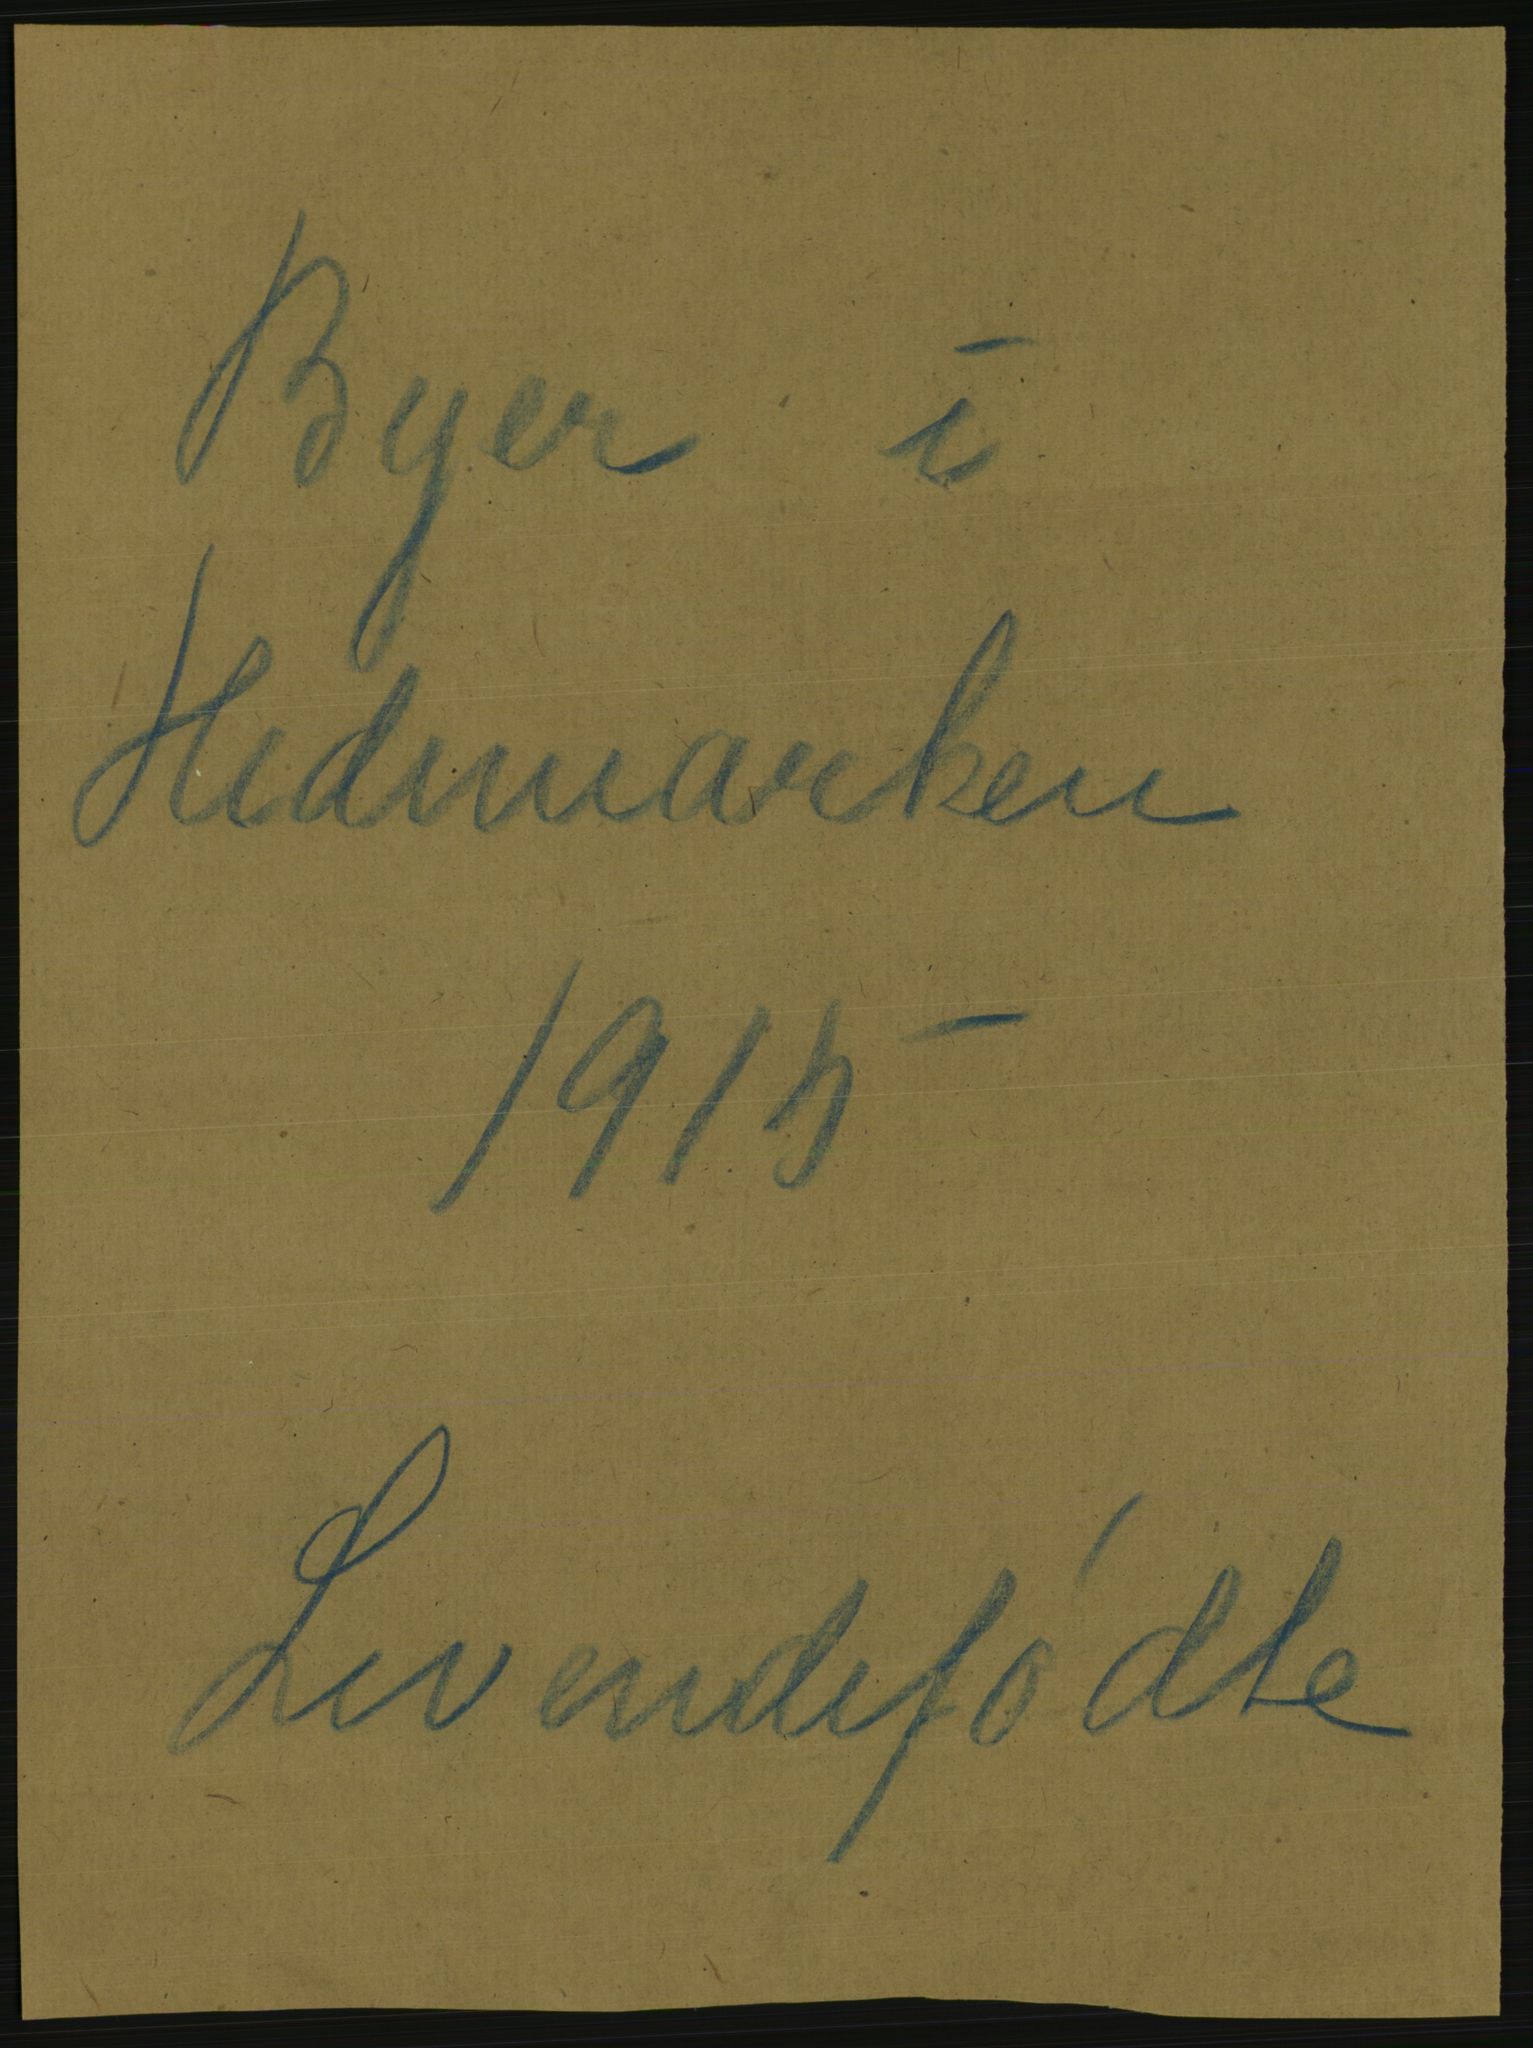 Byer i
Hedmarken
1915
Levendefødte